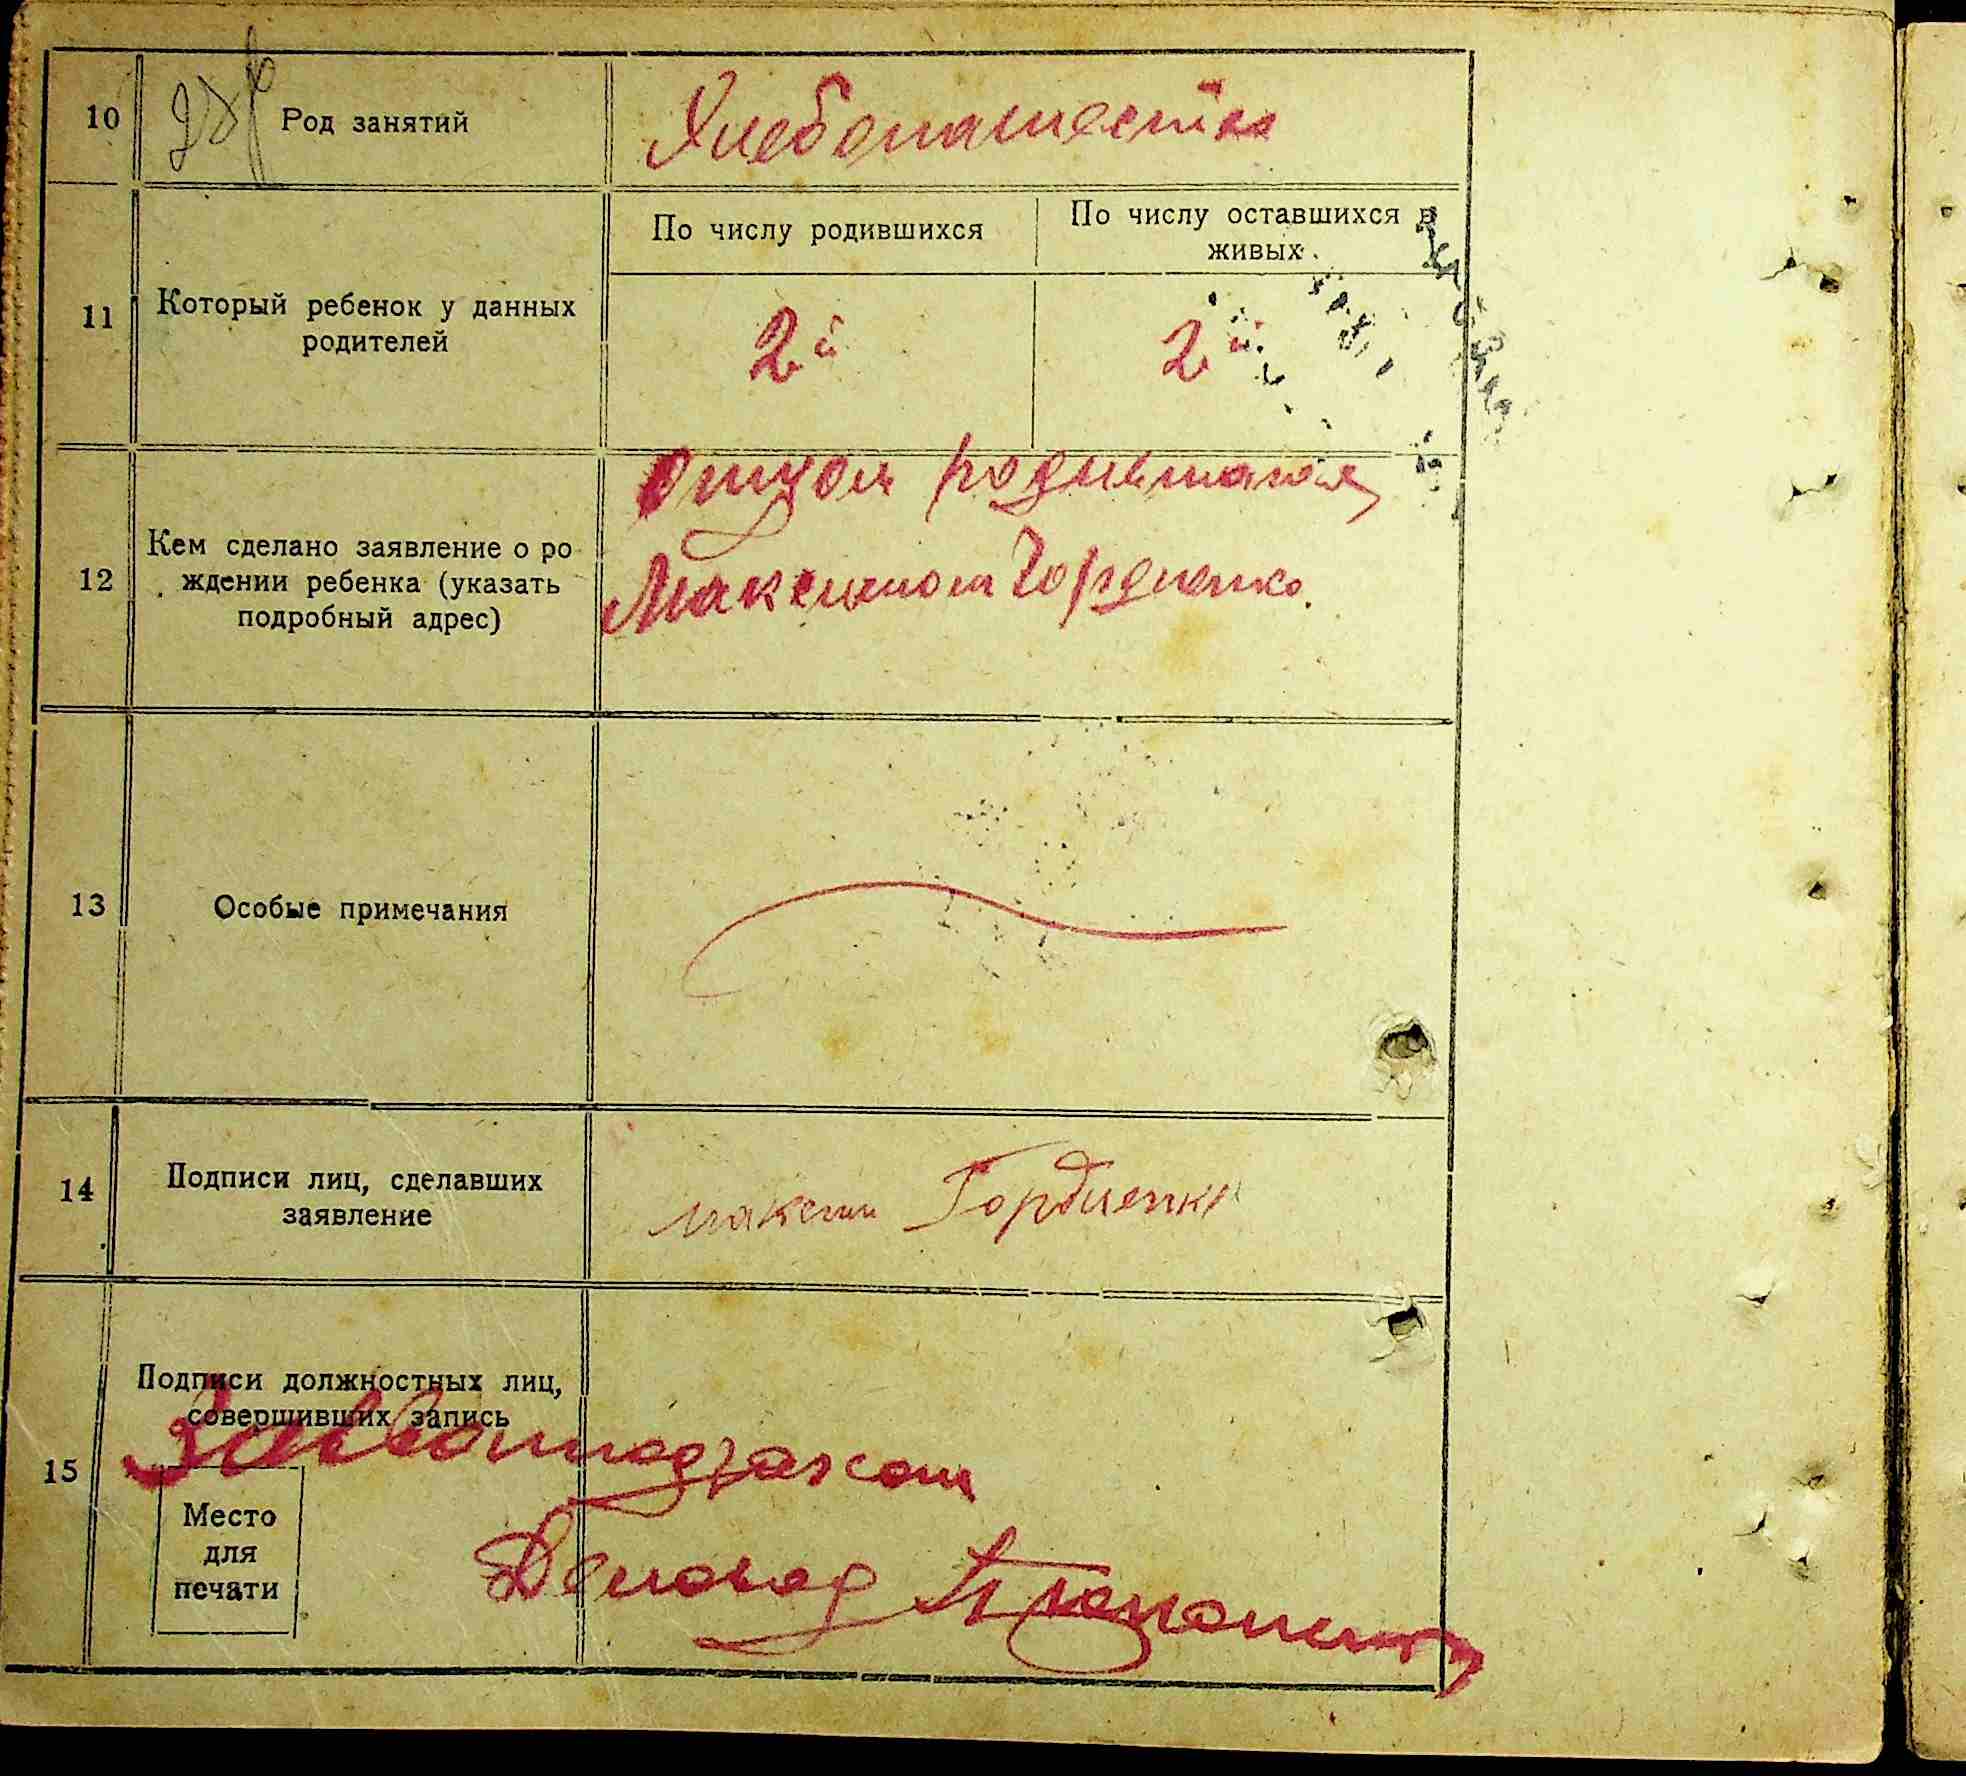 10
Род занятий
Хлебопашество
11
Который ребенок у данных
родителей
По числу родившихся
По числу оставшихся в
живых
2й
2й
12
Кем сделано заявление о ро
ждении ребенка (указать
подробный адрес)
Отцом родившагося
Максимом Гордиенко.
13
Особые примечания
14
Подписи лиц, сделавших
заявление
Максим Гордиенко
15
Подписи должностных лиц,
совершивших запись
Место
для
печати